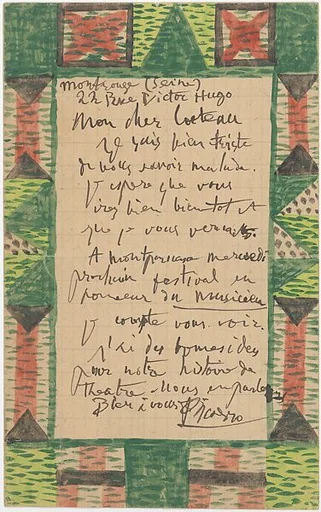 Montrouge (Seine)
22 Rue Victor Hugo
Mon cher Cocteau
Je suis bien triste
de vous savoir malade.
J'espere que vous
irez bien bientot et
que je vous verrai.
A Montparnasse mercredi
prochain festival en
honneur du musicien
Je compte vous voir.
J'ai des bonnes idees
pour notre histoire de
theatre. Nous en parlerons
Bien à vous Picasso